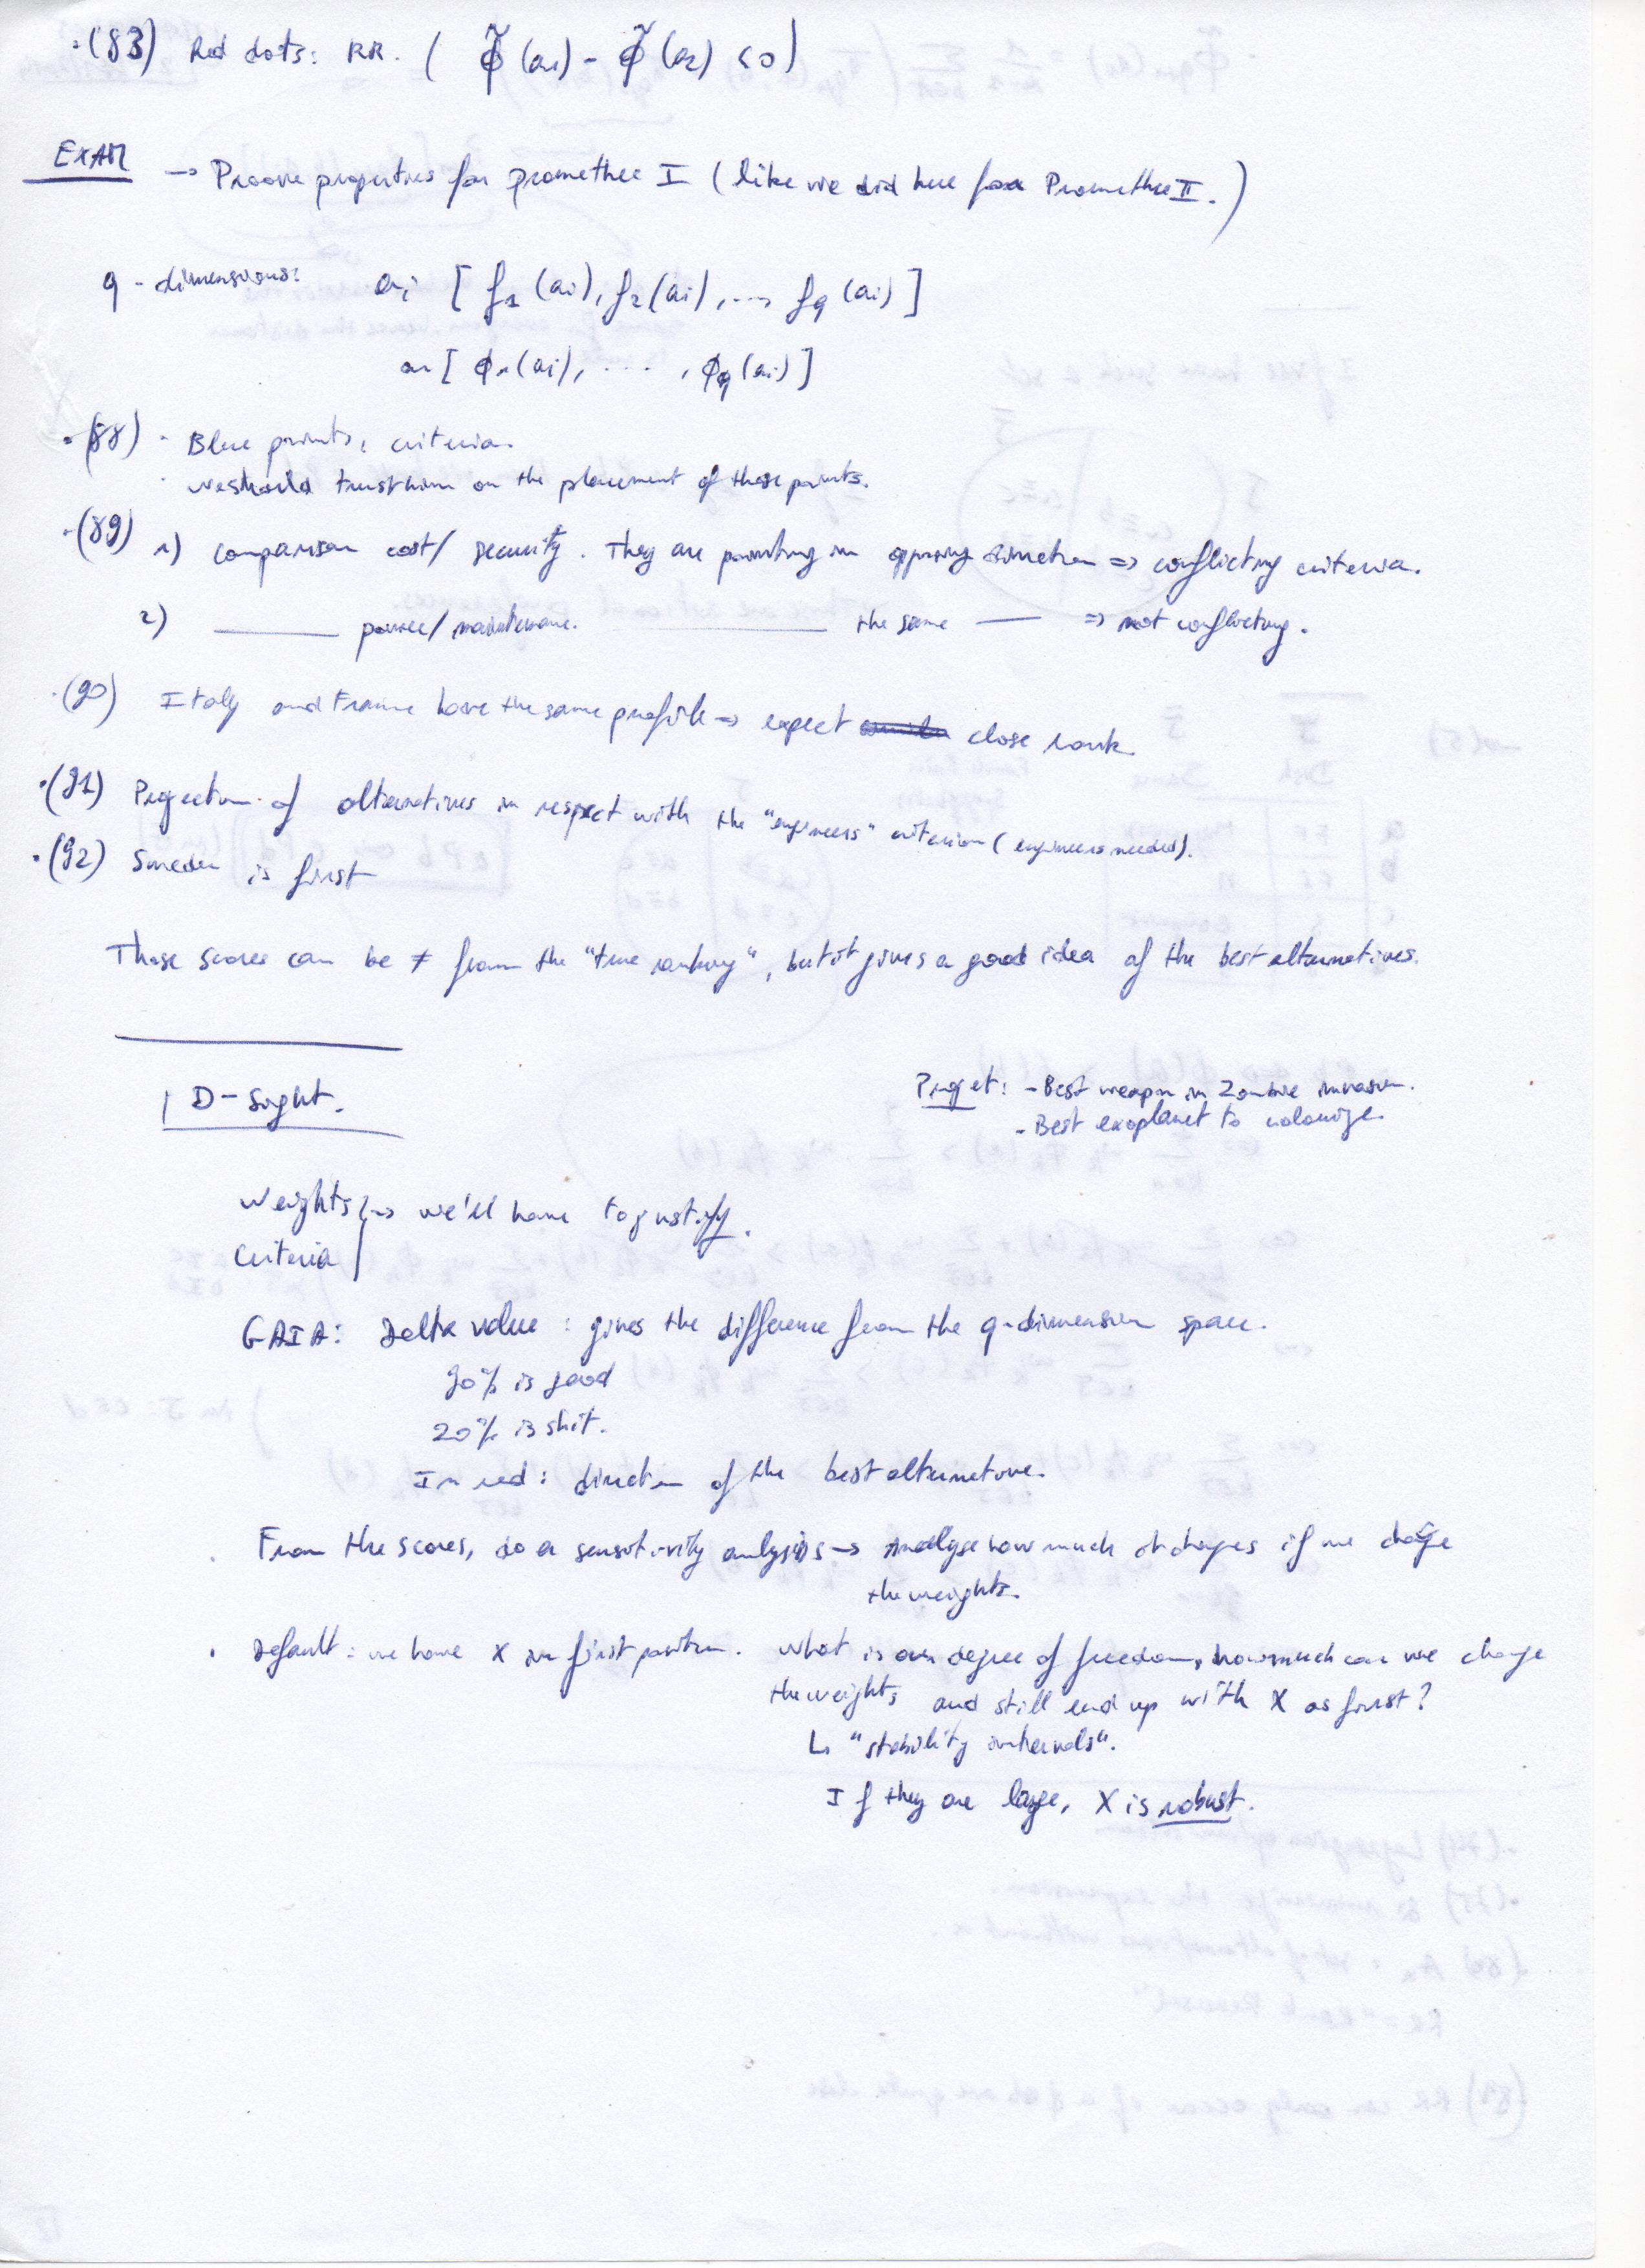 ·(83) Red dots: RR. ( φ̃(a₁) - φ̃(a₂) <0)
EXAM → Proove properties for promethee I (like we did here for Promethee II.)
q-dimensions: ai [f₁(ai), f₂(ai), ..., fq(ai)]
or [ϕ₁(ai), ...., ϕq(ai)]
·(88) · Blue points, criteria.
· We should trust him on the placement of these points.
·(89) 1) comparison cost/security. They are pointing in opposing direction => conflicting criteria.
2) ——— power/maintenance. ——— the same —— => not conflicting.
·(90) Italy and France have the same profile → expect close rank.
·(91) Projection of alternatives in respect with the "engineers" criterion (engineers needed).
·(92) Sweden is first
These scores can be ≠ from the "true ranking", but it gives a good idea of the best alternatives.
D-Sight.
Project: - Best weapon in Zombie invasion.
- Best exoplanet to colonize.
Weights → we'll have to justify.
Criteria
GAIA: Delta value: gives the difference from the q-dimension space.
90% is good
20% is shit.
In red: direction of the best alternative.
· From the scores, do a sensitivity analysis → Analyse how much it changes if we change
the weights.
· Default: we have X in first position. What is our degree of freedom, how much can we change
the weights and still end up with X as first?
↳ "stability intervals".
If they are large, X is robust.